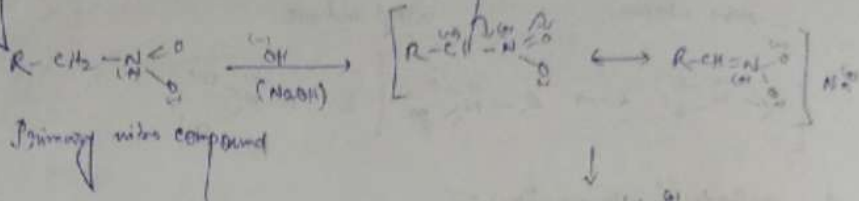 R - CH₂ - N(+) = O, - O(-) —(-)OH (NaOH)→ [ R - CH(-) - N(+) = O, - O(-) ↔ R - CH = N(+) - O(-), - O(-) ] Na(+)
Primary nitro compound
↓